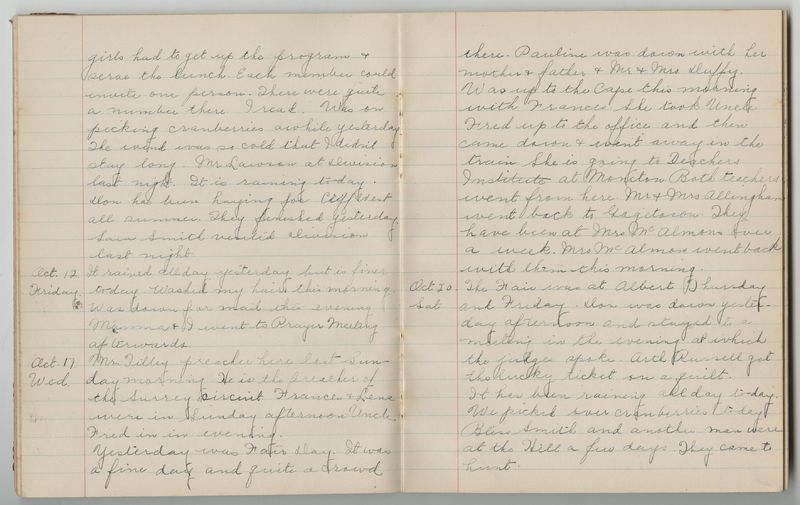 girls had to get up the program &
serve the lunch. Each member could
invite one person. There were quite
a number there. I read. Was on
picking cranberries awhile yesterday.
The wind was so cold that I didn't
stay long. Mr. Lawson at Division
last night. It is raining to-day.
Don has been haying for Cliff West
all summer. They finished yesterday.
Smith visited division
last night.
Oct. 12 It rained all day yesterday but is finer
Friday to-day. Washed my hair this morning.
Was down for mail this evening.
Mamma & I went to Prayer Meeting
afterwards.
Oct. 17. Mr. Tilley preached here last Sun-
Wed. day morning. He is the preacher of
the Surrey circuit. Frances & Lena
were in Sunday afternoon Uncle
Fred in in evening.
Yesterday was Fair Day. It was
a fine day and quite a crowd
there. Pauline was down with her
mother & father & Mr. & Mrs. Duffy.
Was up to the Cape this morning
with Frances. She took Uncle
Fred up to the office and then
came down & went away in the
train. She is going to Teachers
Institute at Moncton. Both teachers
went from here. Mr & Mrs Allingham
went back to Gagetown. They
have been at Mrs McAlmons over
a week. Mrs McAlmon went back
with them this morning.
Oct 20 The Fair was at Albert Thursday
Sat and Friday. Don was down yester-
day afternoon and stayed to a
meeting in the evening at which
the judges spoke. Arth Russell got
the lucky ticket on a quilt.
It has been raining all day to-day.
We picked over cranberries to-day
Bliss Smith and another man were
at the Hill a few days. They came to
hunt.